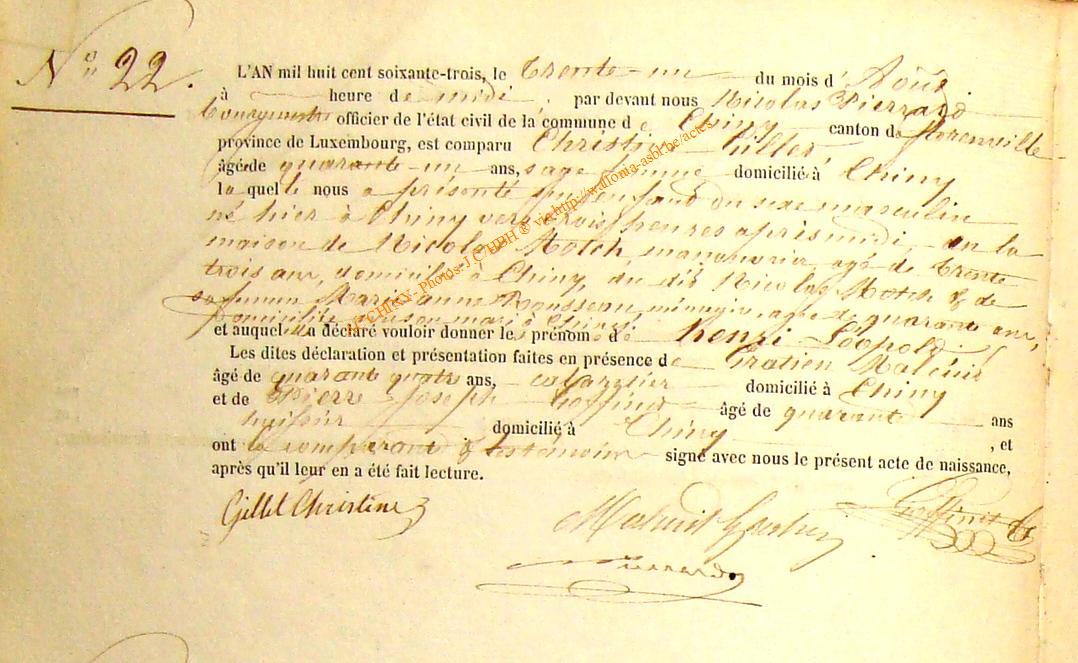 N° 22.
L'AN mil huit cent soixante-trois, le trente-un du mois d'Août
à heure de midi, par devant nous Nicolas Pierrard
bourgmestre officier de l'état civil de la commune de Chiny canton de florenville
province de Luxembourg, est comparu Christine Gillet,
âgé de quarante-un ans, sage femme domicilié à Chiny
laquelle nous a présenté un enfant du sexe masculin
né hier à Chiny vers trois heures après midi, en la
maison de Nicolas Motch, manouvrier, agé de trente
trois ans, domicilié à Chiny, du dit Nicolas Motch & de
sa femme Marie anne Rousseau, ménagère, agée de quarante ans,
domiciliée son mari à Chiny
et auquel a déclaré vouloir donner le prénom de henri Léopold
Les dites déclaration et présentation faites en présence de Gratien
âgé de quarante quatre ans, cabaretier domicilié à Chiny
et de Pierre Joseph Goffinet âgé de quarante ans
huissier domicilié à Chiny, et
ont la comparante & les témoins signé avec nous le présent acte de naissance,
après qu'il leur en a été fait lecture.
Gillet Christine
Goffinet
Pierrard
CHINY - Photos-JC HBH ® via http://wallonia-asbl.be/actes